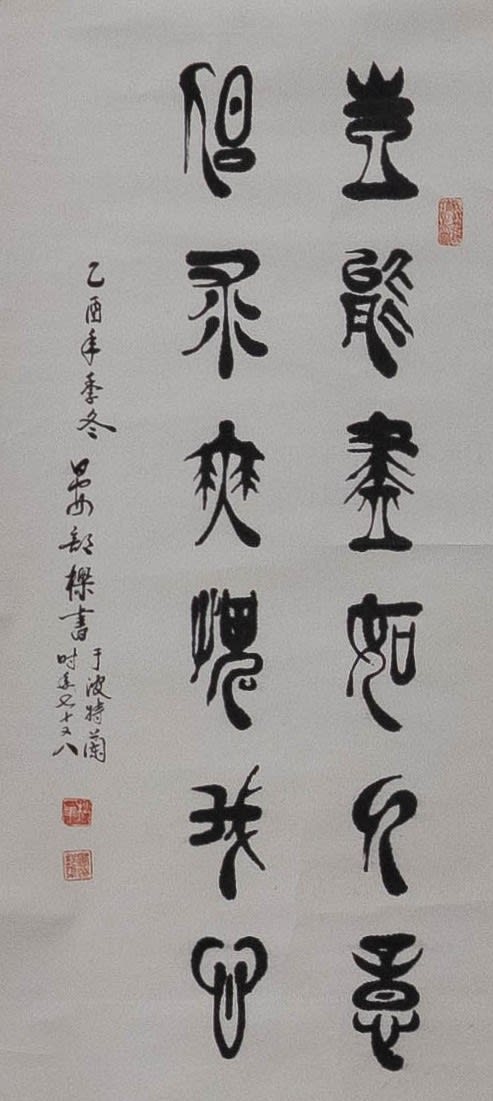 豈能盡如人意
但求無愧我心
乙酉年季冬 樑書
于波特蘭
时年七十又八